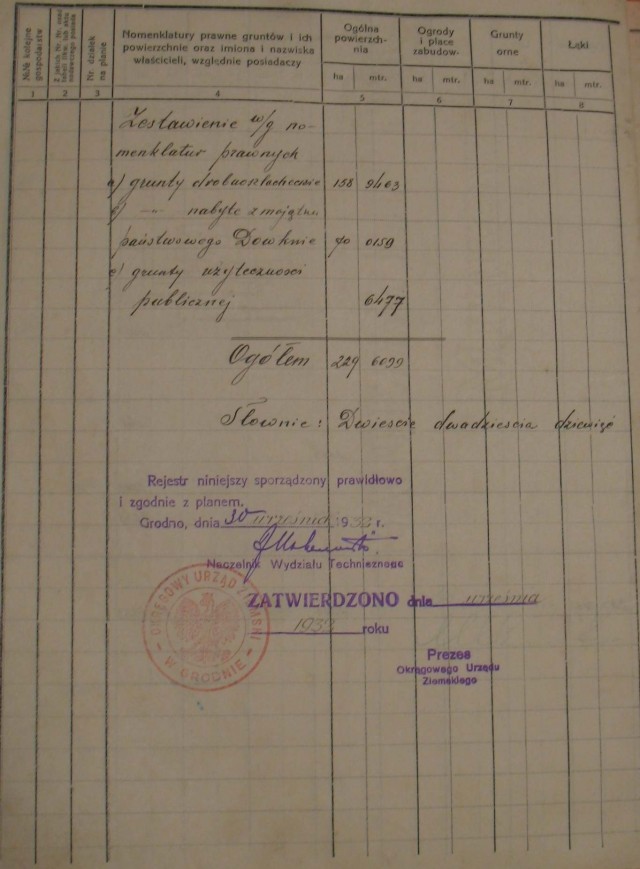 №№ kolejne gospodarstw
Nr działek na planie
Nomenklatury prawne gruntów i ich powierzchnie oraz imiona i nazwiska właścicieli, względnie posiadaczy
Ogólna powierzchnia
Ogrody i place zabudow.
Grunty orne
Łąki
ha mtr. ha mtr. ha mtr. ha mtr.
1 2 3 4 5 6 7 8
Zestawienie w/g no-
menklatur prawnych
a) grunty drobnoszlacheckie 158 9463
b) —„— nabyte z majątku
państwowego Dowknie 70 0159
c) grunty użyteczności
publicznej 6477
Ogółem 229 6099
Słownie: Dwieście dwadzieścia dziewięć
Rejestr niniejszy sporządzony prawidłowo
i zgodnie z planem.
Grodno, dnia 30 września 1933 r.
Naczelnik Wydziału Technicznego
OKRĘGOWY URZĄD ZIEMSKI
W GRODNIE
ZATWIERDZONO dnia września
1933 roku
Prezes
Okręgowego Urzędu
Ziemskiego